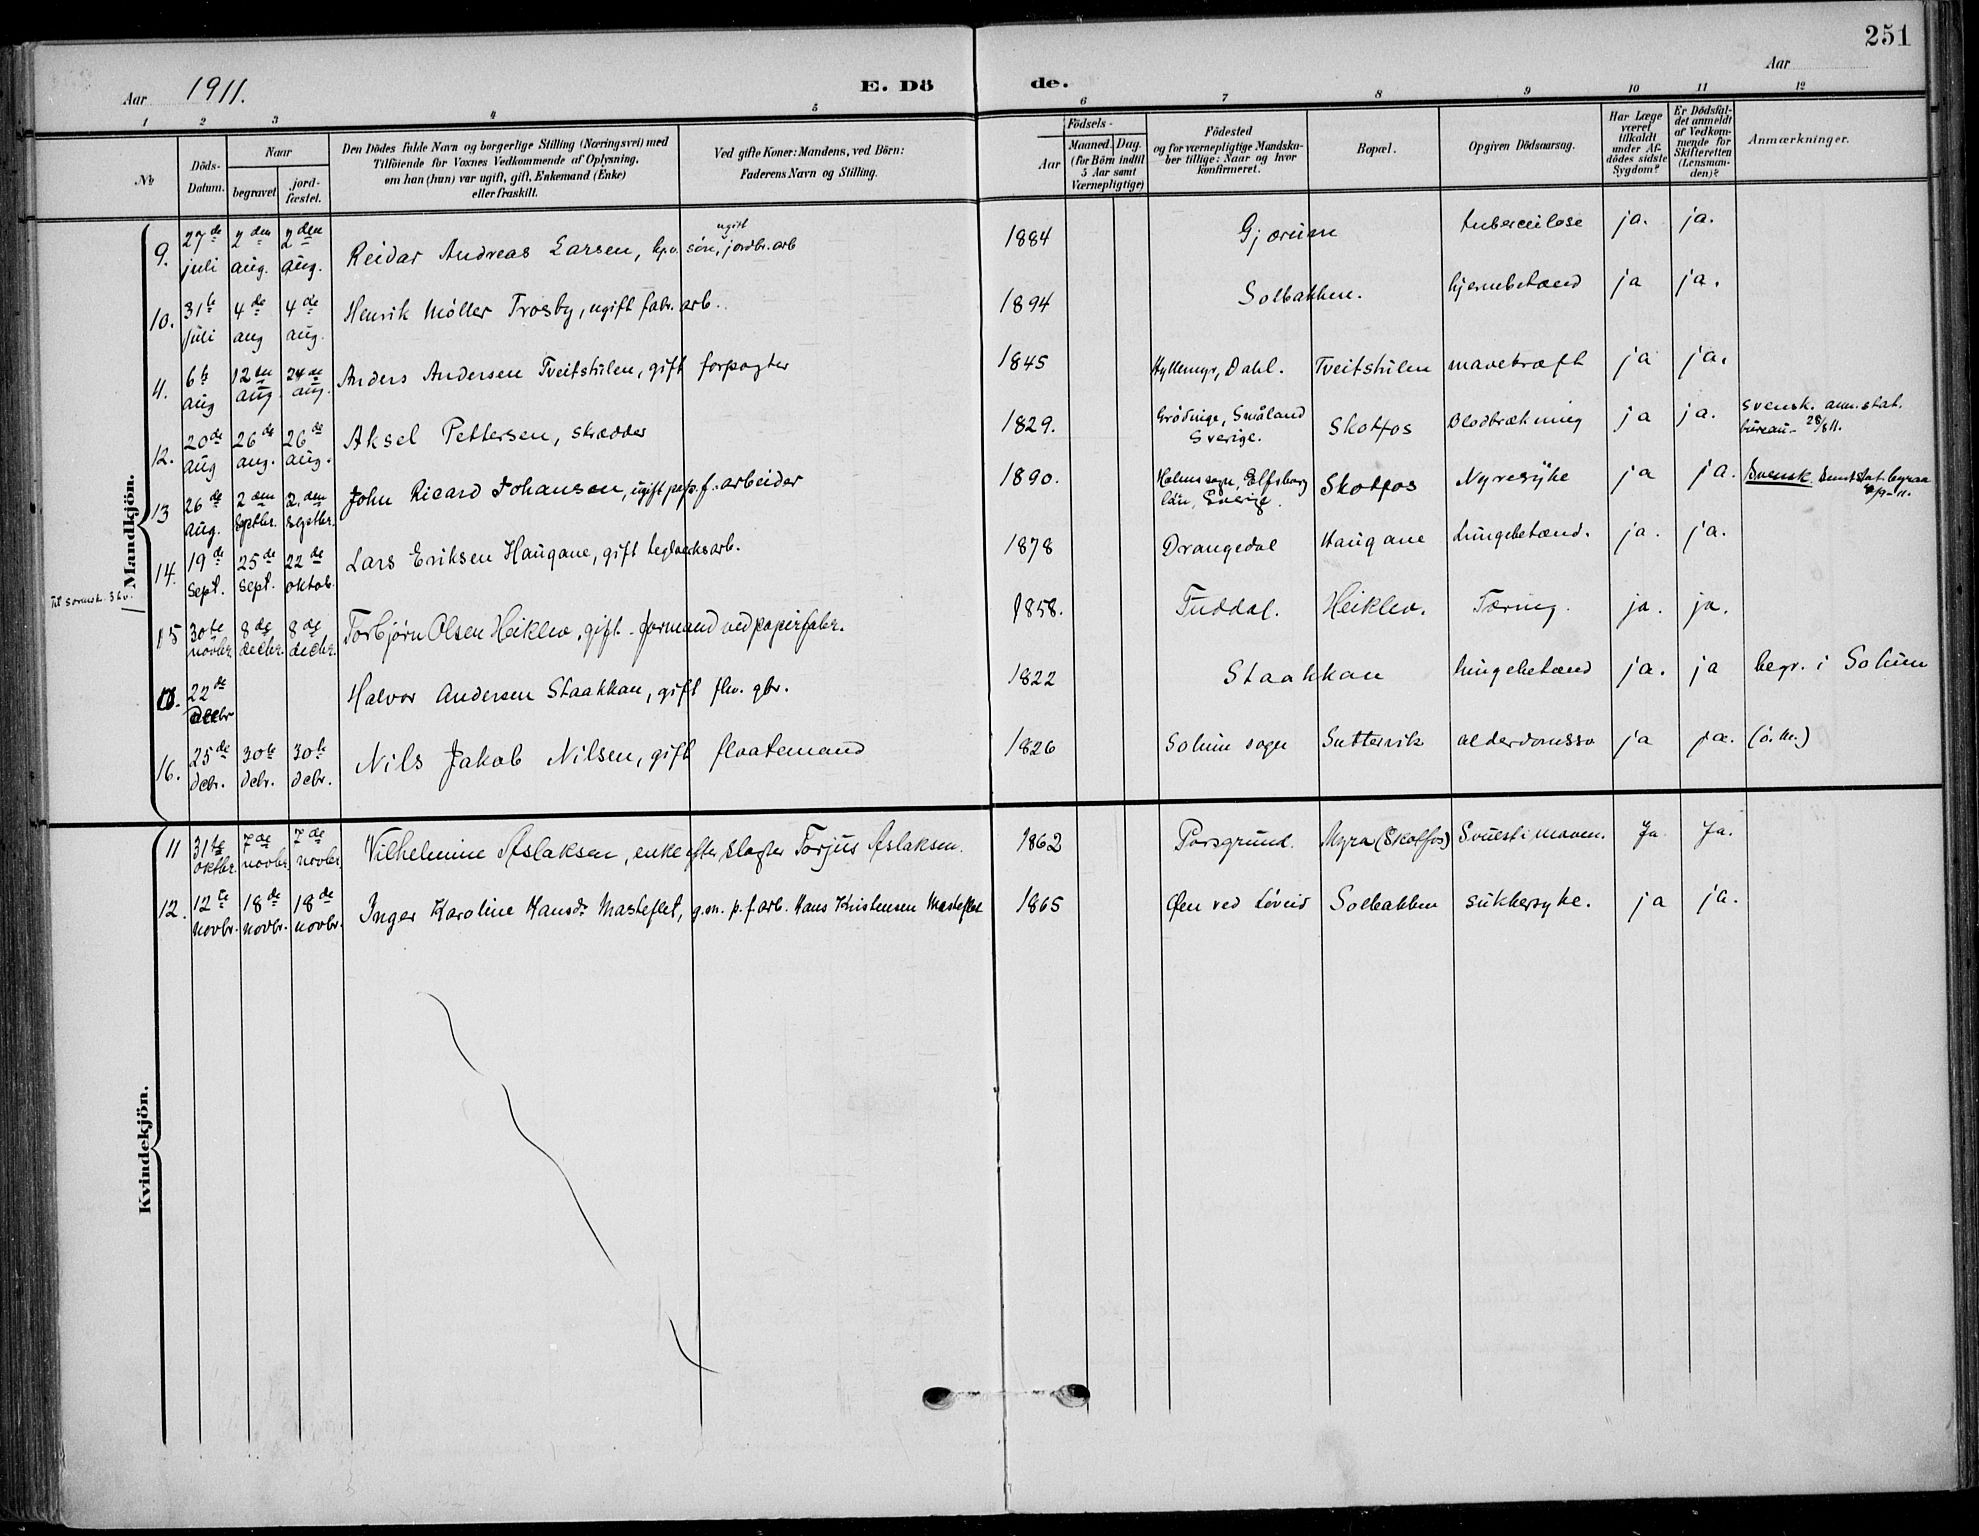 251
Aar 1911. E. Dö de. Aar
1 2 3 4 5 6 7 8 9 10 11 12
№ Döds-Datum. Naar begravet. jord-fæstet. Den Dödes fulde Navn og borgerlige Stilling (Næringsvei) med Tilföiende for Voxnes Vedkommende af Oplysning, om han (hun) var ugift, gift, Enkemand (Enke) eller fraskilt. Ved gifte Koner: Mandens, ved Börn: Faderens Navn og Stilling. Födsels- Aar Maaned. Dag. (for Börn indtil 5 Aar samt Værnepligtige) Födested og for værnepligtige Mandskaber tillige: Naar og hvor konfirmeret. Bopæl. Opgiven Dödsaarsag. Har Læge været tilkaldt under Afdödes sidste Sygdom? Er Dödsfaldet anmeldt af Vedkommende for Skifteretten (Lensmanden)? Anmærkninger.
Mandkjön.
9. 27de juli 2den aug. 2den aug. Reidar Andreas Larsen, hp.v. søn, ugift jordbr. arb 1884 Gjærum tuberculose ja. ja.
10. 31te juli 4de aug 4de aug. Henrik Møller Trosby, ugift fabr. arb. 1894 Solbakken. hjernebetænd ja ja.
11. 6te aug 12te aug. 24de aug. Anders Andersen Tveitstulen, gift forpagter 1845 Hyllemyr, Dahl. Tveitstulen mavekræft ja ja.
12. 20de aug 26de aug. 26de aug. Aksel Pettersen, skrædder 1829. Grödinge, Småland Sverige. Skotfos Blodbrækning ja ja. svensk. anm. stat. bureau 28/8 11.
13 26de aug. 2den septbr. 2.den septbr. John Ricard Johansen, ugift pap. f. arbeider 1890. Holms sogn, Elfsborg län, Sverige. Skotfos Nyresyke ja ja. Svensk
14. 19de sept. 25de sept. 22de oktob. Lars Eriksen Haugane, gift teglverksarb. 1878 Drangedal Haugane Lungebetænd. ja. ja.
15 30te novbr. 8de decbr. 8de decbr. Torbjørn Olsen Heiklev, gift formand ved papirfabr. 1858. Tuddal. Heiklev. Tæring. ja. ja.
22de decbr Halvor Andersen Staakkan, gift fhv. gbr. 1822 Staakkan lungebetænd ja. ja begr. i Solum
16. 25de debr. 30te debr. 30te debr. Nils Jakob Nilsen, gift fløatemand 1826 Solum sogn Suttervik alderdomssv ja ja.
Kvindekjön.
11 31te oktbr. 7de novbr. 7de novbr. Vilhelmine Aslaksen, enke efter slagter Torjus Aslaksen. 1862 Porsgrund. Myra (Skotfos) Svulst i maven. Ja. Ja.
12. 12te novbr. 18de novbr. 18de novbr. Inger Karoline Hansdr Masteflet, g.m. p. f. arb. Hans Kristensen Masteflet 1865 Øen ved Løveid Solbakken sukkersyke. ja ja.